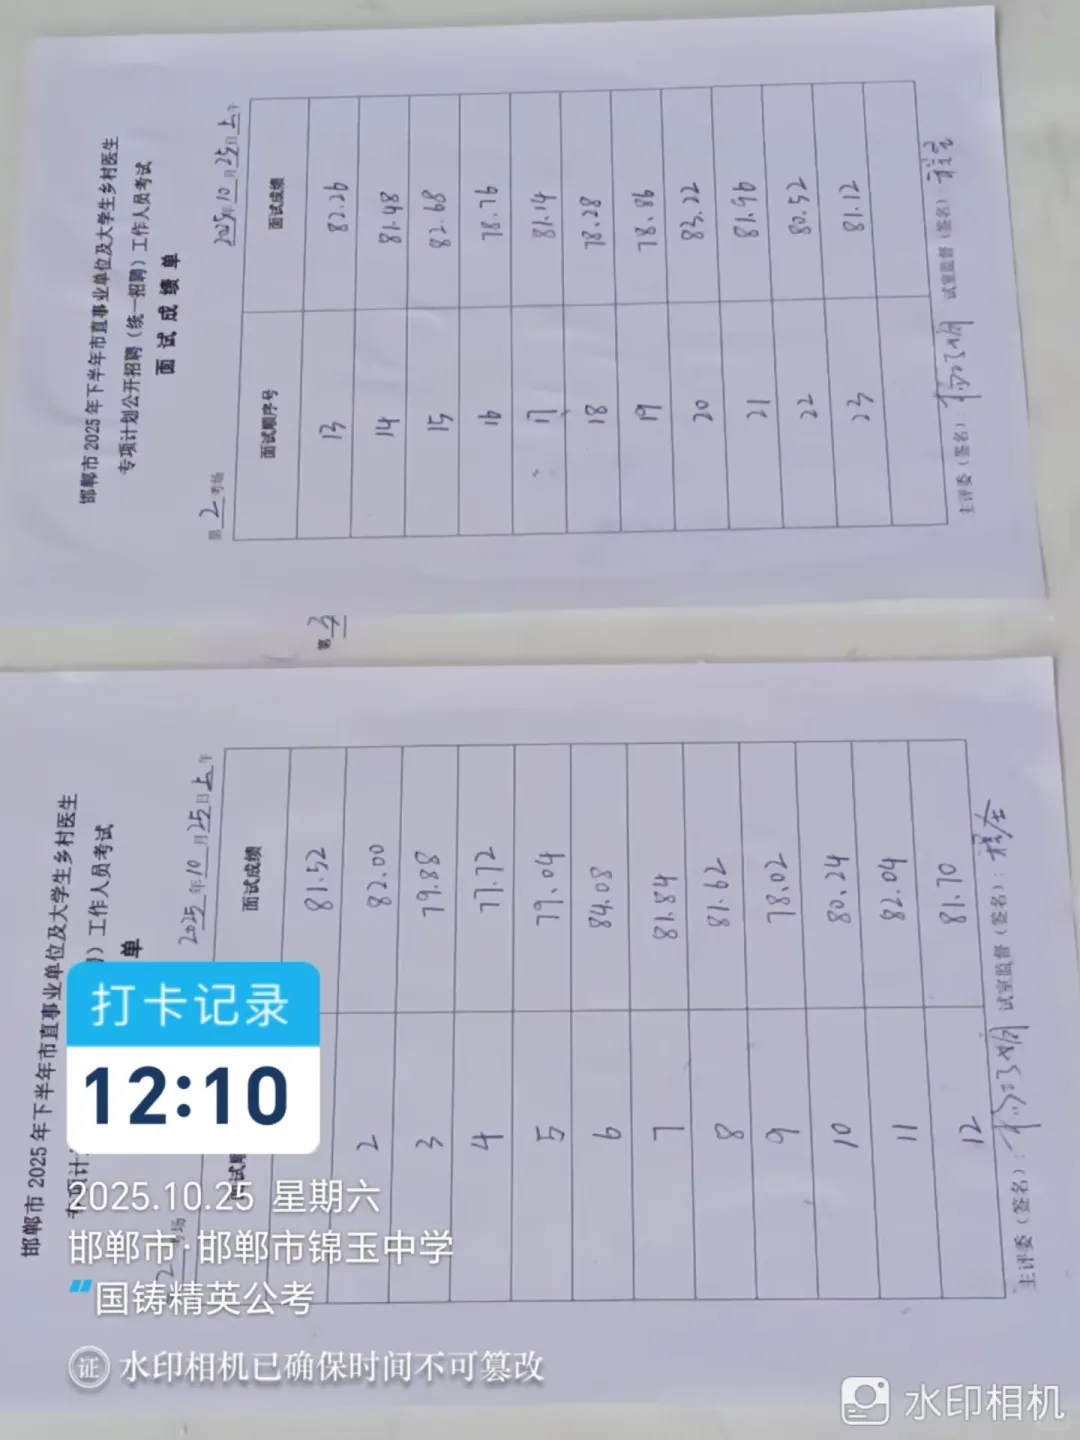 邯郸市 2025 年下半年市直事业单位及大学生乡村医生
专项计划公开招聘（统一招聘）工作人员考试
面 试 成 绩 单
第 2 考场 2025年10月25日上午
面试顺序号 面试成绩
13 82.26
14 81.48
15 82.68
16 78.76
17 81.14
18 78.28
19 78.86
20 83.22
21 81.96
22 80.52
23 81.12
主评委（签名）： 试室监督（签名）：
第 3
邯郸市 2025 年下半年市直事业单位及大学生乡村医生
专项计 ）工作人员考试
单
2 考场 2025年10月25日上午
面试顺 面试成绩
81.52
2 82.00
3 79.88
4 77.72
5 79.04
6 84.08
7 81.84
8 81.62
9 78.02
10 80.24
11 82.04
12 81.70
主评委（签名）： 试室监督（签名）：
打卡记录
12:10
2025.10.25 星期六
邯郸市·邯郸市锦玉中学
国铸精英公考
证 水印相机已确保时间不可篡改
水印相机